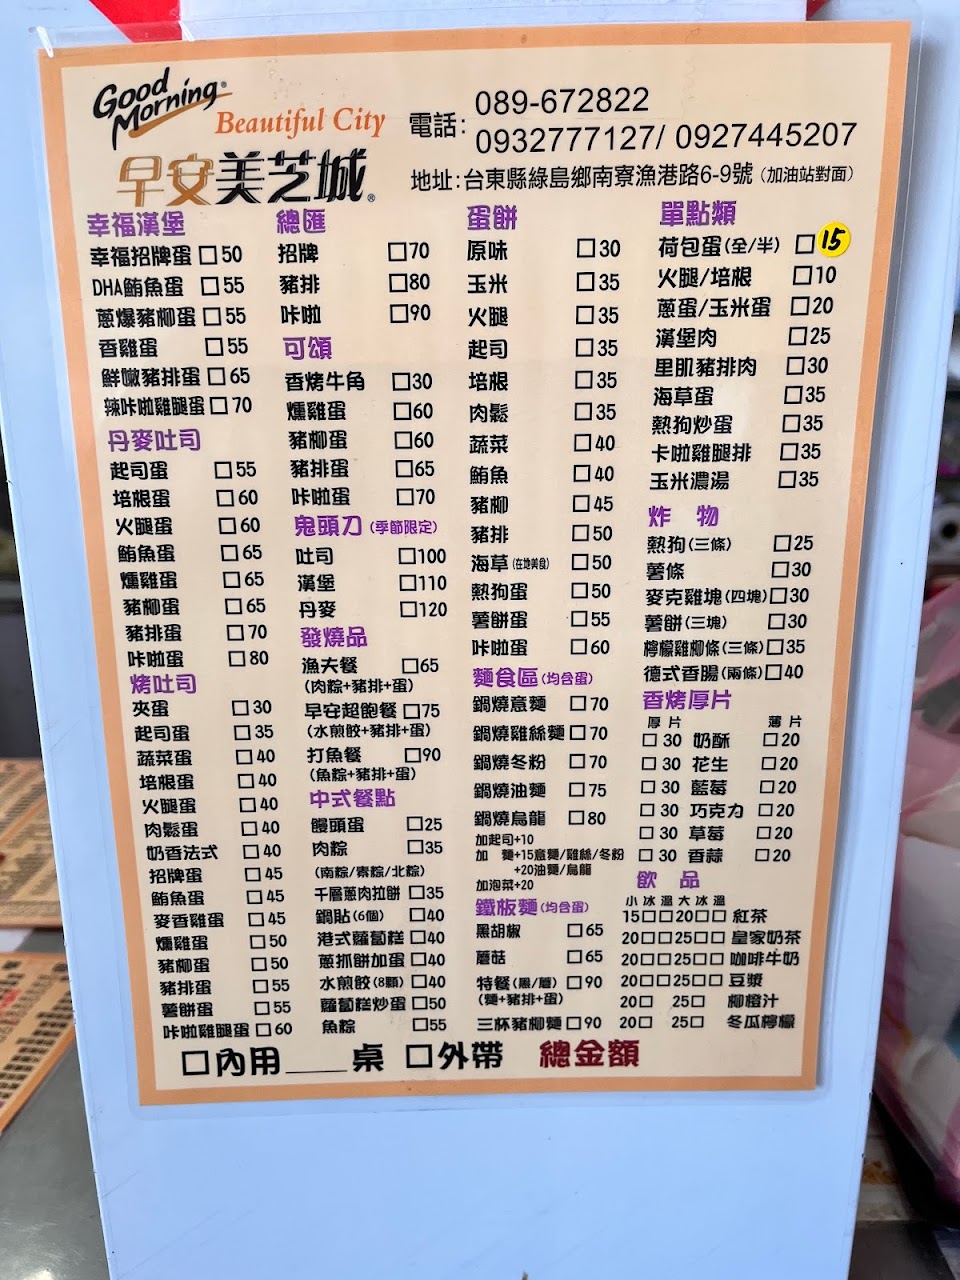 Good Morning
Beautiful City
早安美芝城
電話：
089-672822
0932777127/ 0927445207
地址：台東縣綠島鄉南寮漁港路6-9號（加油站對面）
幸福漢堡
幸福招牌蛋 □50
DHA鮪魚蛋 □55
蔥爆豬柳蛋 □55
香雞蛋 □55
鮮嫩豬排蛋 □65
辣咔啦雞腿蛋 □70
丹麥吐司
起司蛋 □55
培根蛋 □60
火腿蛋 □60
鮪魚蛋 □65
燻雞蛋 □65
豬柳蛋 □65
豬排蛋 □70
咔啦蛋 □80
烤吐司
夾蛋 □30
起司蛋 □35
蔬菜蛋 □40
培根蛋 □40
火腿蛋 □40
肉鬆蛋 □40
奶香法式 □40
招牌蛋 □45
鮪魚蛋 □45
麥香雞蛋 □45
燻雞蛋 □50
豬柳蛋 □50
豬排蛋 □55
薯餅蛋 □55
咔啦雞腿蛋 □60
總匯
招牌 □70
豬排 □80
咔啦 □90
可頌
香烤牛角 □30
燻雞蛋 □60
豬柳蛋 □60
豬排蛋 □65
咔啦蛋 □70
鬼頭刀（季節限定）
吐司 □100
漢堡 □110
丹麥 □120
發燒品
漁夫餐 □65
(肉粽+豬排+蛋)
早安超飽餐 □75
(水煎餃+豬排+蛋)
打魚餐 □90
(魚粽+豬排+蛋)
中式餐點
饅頭蛋 □25
肉粽 □35
(南粽/素粽/北粽)
千層蔥肉拉餅 □35
鍋貼(6個) □40
港式蘿蔔糕 □40
蔥抓餅加蛋 □40
水煎餃(8顆) □40
蘿蔔糕炒蛋 □50
魚粽 □55
蛋餅
原味 □30
玉米 □35
火腿 □35
起司 □35
培根 □35
肉鬆 □35
蔬菜 □40
鮪魚 □40
豬柳 □45
豬排 □50
海草(在地美食) □50
熱狗蛋 □50
薯餅蛋 □55
咔啦蛋 □60
麵食區(均含蛋)
鍋燒意麵 □70
鍋燒雞絲麵 □70
鍋燒冬粉 □70
鍋燒油麵 □75
鍋燒烏龍 □80
加起司+10
加 麵+15意麵/雞絲/冬粉
+20油麵/烏龍
加泡菜+20
鐵板麵(均含蛋)
黑胡椒 □65
蘑菇 □65
特餐(黑/蘑) □90
(麵+豬排+蛋)
三杯豬柳麵 □90
單點類
荷包蛋(全/半) □ 15
火腿/培根 □10
蔥蛋/玉米蛋 □20
漢堡肉 □25
里肌豬排肉 □30
海草蛋 □35
熱狗炒蛋 □35
卡啦雞腿排 □35
玉米濃湯 □35
炸 物
熱狗(三條) □25
薯條 □30
麥克雞塊(四塊) □30
薯餅(三塊) □30
檸檬雞柳條(三條) □35
德式香腸(兩條) □40
香烤厚片
厚片 薄片
□30 奶酥 □20
□30 花生 □20
□30 藍莓 □20
□30 巧克力 □20
□30 草莓 □20
□30 香蒜 □20
飲 品
小 冰 溫 大 冰 溫
15□□20□□ 紅茶
20□□25□□ 皇家奶茶
20□□25□□ 咖啡牛奶
20□□25□□ 豆漿
20□ 25□ 柳橙汁
20□ 25□ 冬瓜檸檬
□內用____桌 □外帶 總金額